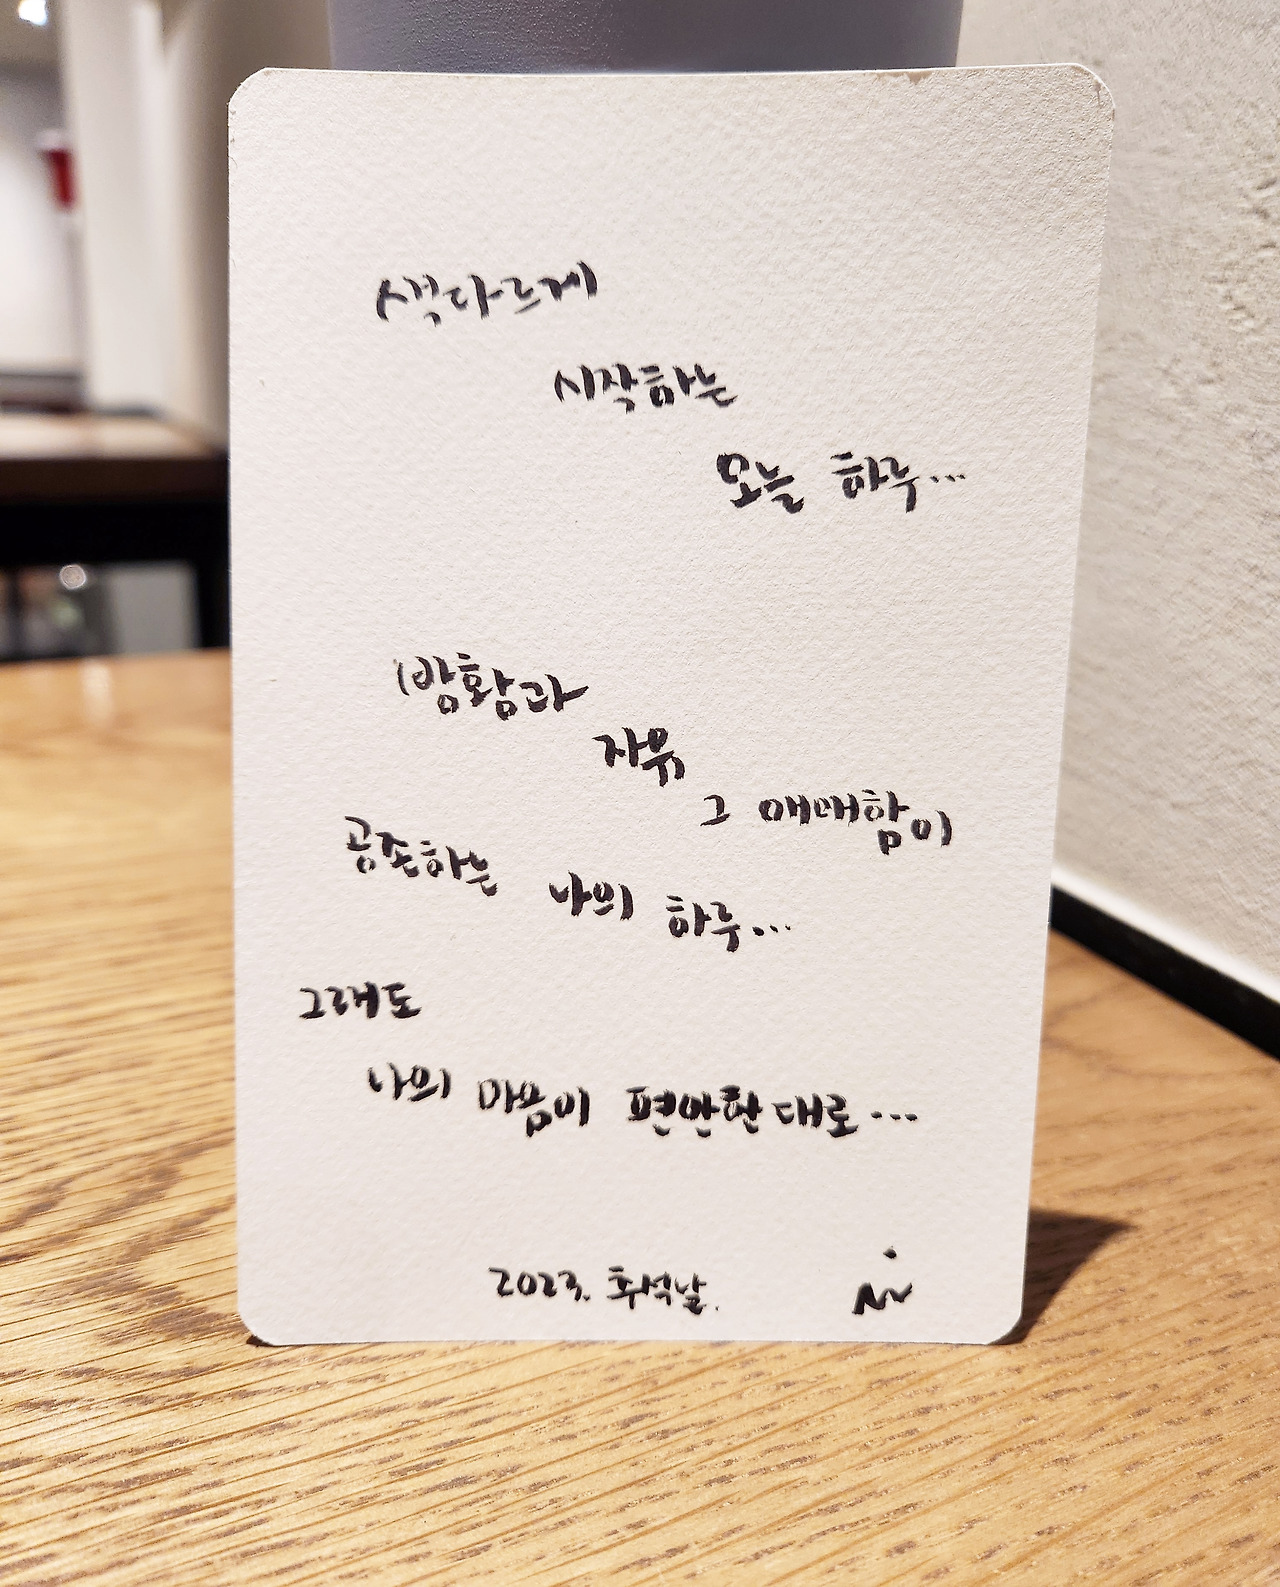 색다르게
시작하는
오늘 하루...
방황과
자유
그 애매함이
공존하는 나의 하루...
그래도
나의 마음이 편안한대로...
2023. 추석날.